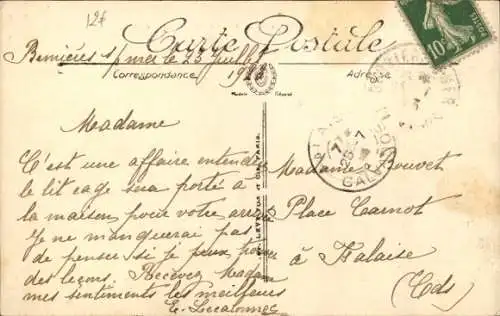 12f
Carte Postale
Bernières s/mer le 25 Juillet
Correspondance
Adresse
10c
Madame
C'est une affaire entendue
le lit cage sera porté à
la maison pour votre arrivée
Je ne manquerai pas
de penser si je peux trouver
des leçons. Recevez Madame
mes sentiments les meilleurs
E. Lecavonnec
Madame Bouvet
Place Carnot
à Falaise
(Cds)
FALAISE
25-7
CALVADOS